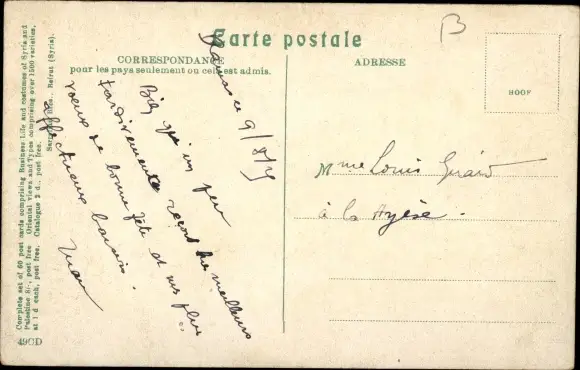 Carte postale
CORRESPONDANCE
pour les pays seulement ou cela est admis.
ADRESSE
B
Complete set of 60 post cards comprising Business Life and costumes of Syria and
Palestine 6/-, post free Oriental views and Types comprising over 1500 varieties,
at 1 d each, post free. Catalogue 3 d., post free.
Bros., Beirut (Syria).
49CD
le 9/8/
Bien qu'un peu
tardivement reçois les meilleurs
voeux de bonne fête et nos plus
affectueux baisers.
Mme Louis
à la